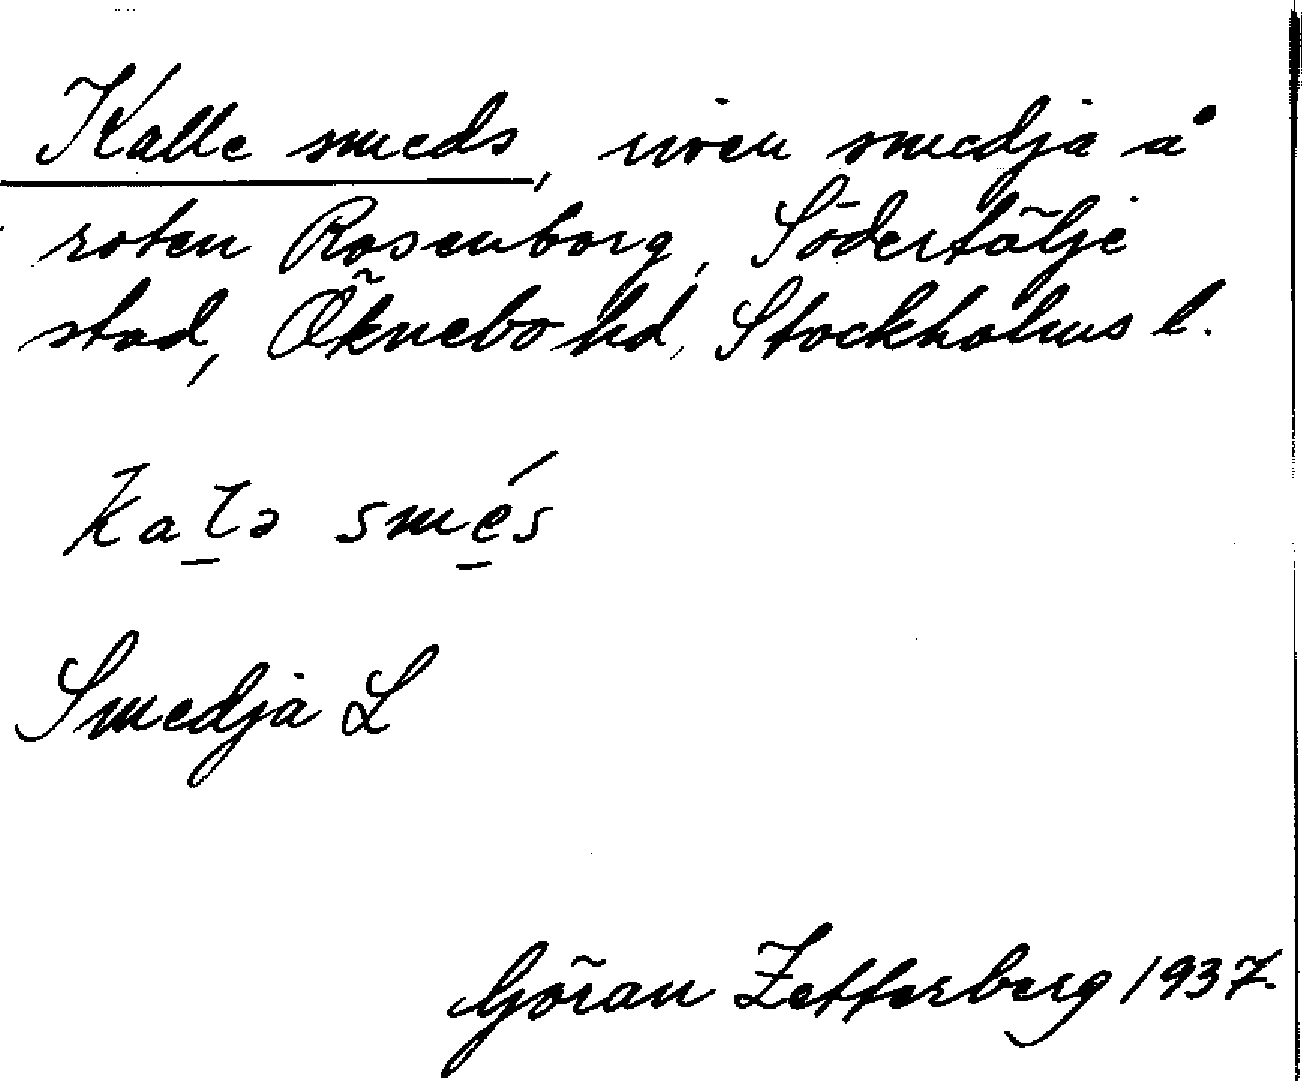 Kalle smeds, riven smedja å
roten Rosenborg, Södertälje
stad, Öknebo hd, Stockholms l.
kalə smés
Smedja L
Göran Zetterberg 1937